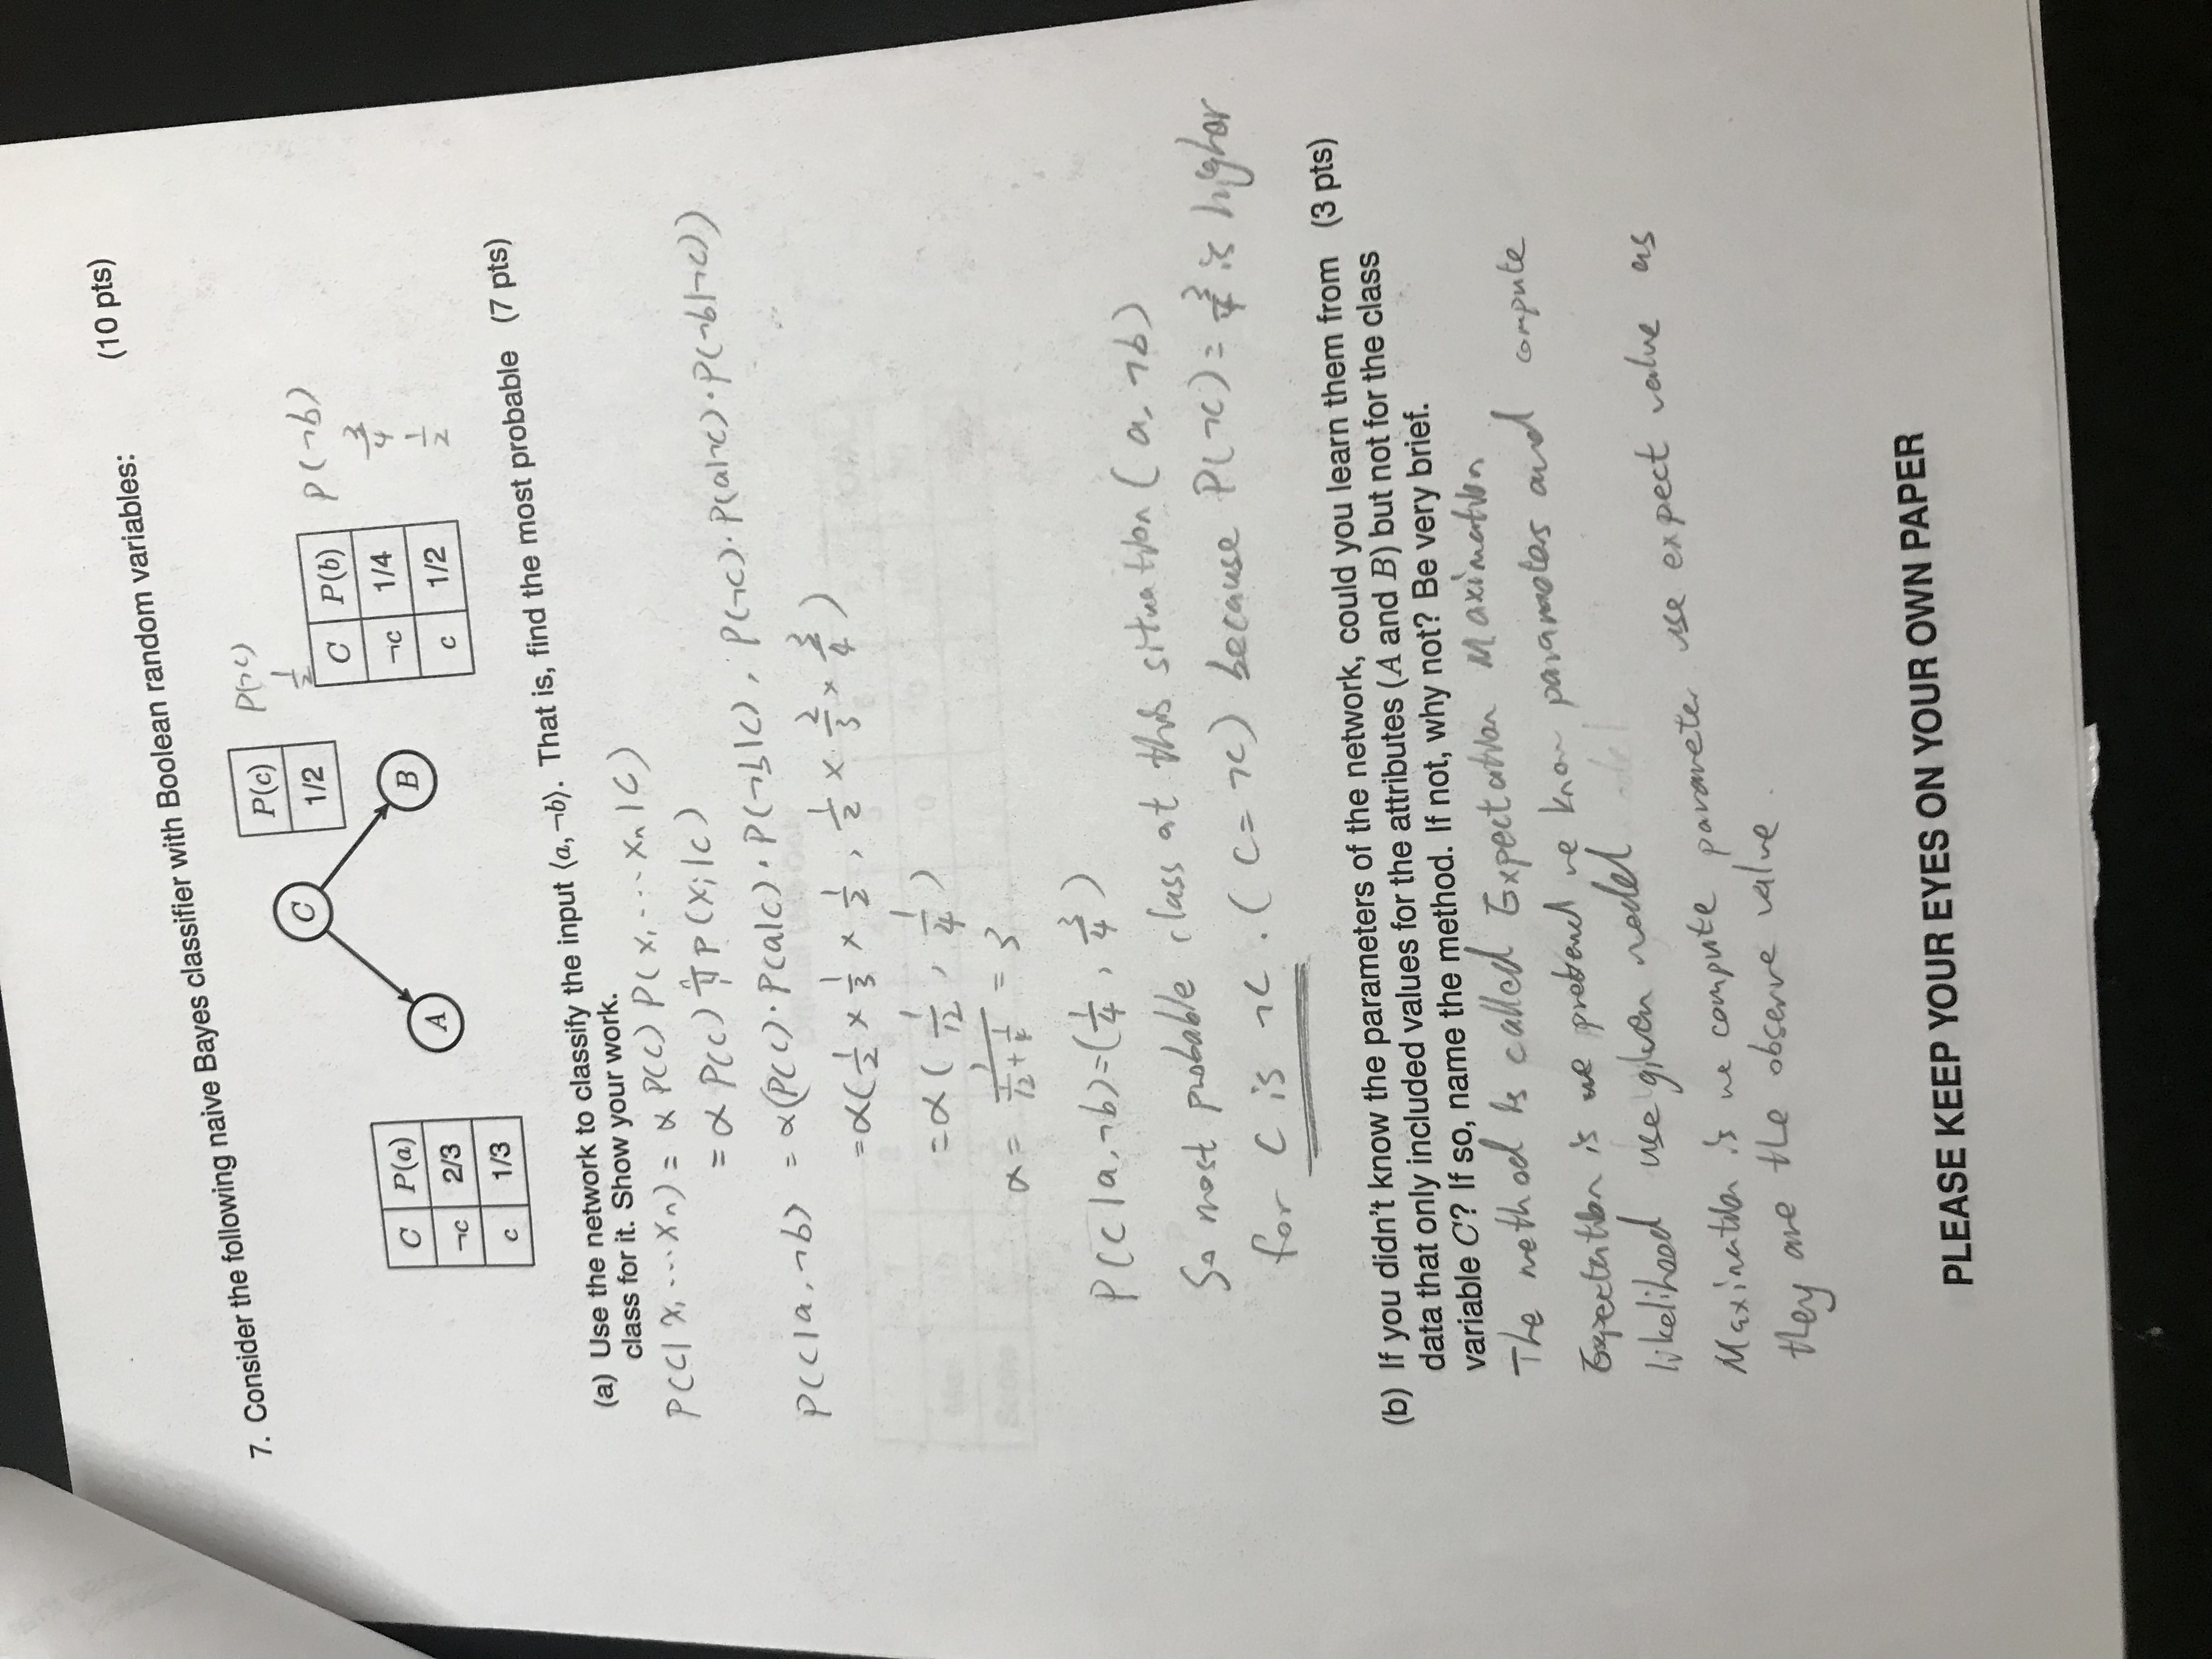 (10 pts)
7. Consider the following naive Bayes classifier with Boolean random variables:
P(c)
1/2
P(¬c)
1/2
C
A
B
C P(b)
¬c 1/4
c 1/2
P(¬b)
3/4
1/2
C P(a)
¬c 2/3
c 1/3
(a) Use the network to classify the input ⟨a, ¬b⟩. That is, find the most probable (7 pts)
class for it. Show your work.
P(C| x₁ ... xₙ) = α P(C) P(x₁ ... xₙ | C)
= α P(C) ∏ⁿ₁ P(xᵢ|C)
P(C|a, ¬b) = α(P(c)·P(a|c)·P(¬b|c), P(¬c)·P(a|¬c)·P(¬b|¬c))
= α(1/2 × 1/3 × 1/2, 1/2 × 2/3 × 3/4)
= α(1/12, 1/4)
α = 1/(1/12 + 1/4) = 3
P(C|a, ¬b) = (1/4, 3/4)
So most probable class at this situation (a, ¬b)
for C is ¬c. (C = ¬c) because P(¬c) = 3/4 is higher
(b) If you didn't know the parameters of the network, could you learn them from (3 pts)
data that only included values for the attributes (A and B) but not for the class
variable C? If so, name the method. If not, why not? Be very brief.
The method is called Expectation Maximation
Expectation is we pretend we know parameters and compute
likelihood use given model
Maximation is we compute parameter use expect value as
they are the observe value.
PLEASE KEEP YOUR EYES ON YOUR OWN PAPER